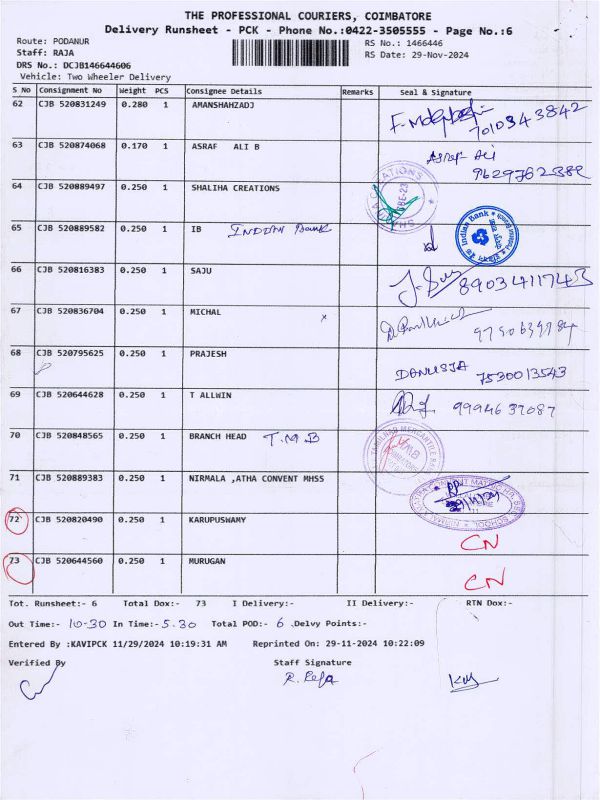 THE PROFESSIONAL COURIERS, COIMBATORE
Delivery Runsheet - PCK - Phone No.:0422-3505555 - Page No.:6
Route: PODANUR RS No.: 1466446
Staff: RAJA RS Date: 29-Nov-2024
DRS No.: DCJB146644606
Vehicle: Two Wheeler Delivery
S No Consignment No Weight PCS Consignee Details Remarks Seal & Signature
62 CJB 520831249 0.280 1 AMANSHAHZADJ
7010343842
63 CJB 520874068 0.170 1 ASRAF ALI B Asraf Ali
9629762382
64 CJB 520889497 0.250 1 SHALIHA CREATIONS
65 CJB 520889582 0.250 1 IB INDIAN Bank Indian Bank
66 CJB 520816383 0.250 1 SAJU
8903411743
67 CJB 520836704 0.250 1 MICHAL x
68 CJB 520795625 0.250 1 PRAJESH
7530013543
69 CJB 520644628 0.250 1 T ALLWIN 9994637087
70 CJB 520848565 0.250 1 BRANCH HEAD T.M.B
71 CJB 520889383 0.250 1 NIRMALA ,ATHA CONVENT MHSS
72 CJB 520820490 0.250 1 KARUPUSWAMY
CN
73 CJB 520644560 0.250 1 MURUGAN
CN
Tot. Runsheet:- 6 Total Dox:- 73 I Delivery:- II Delivery:- RTN Dox:-
Out Time:- 10-30 In Time:- 5.30 Total POD:- 6 Delvy Points:-
Entered By :KAVIPCK 11/29/2024 10:19:31 AM Reprinted On: 29-11-2024 10:22:09
Verified By Staff Signature